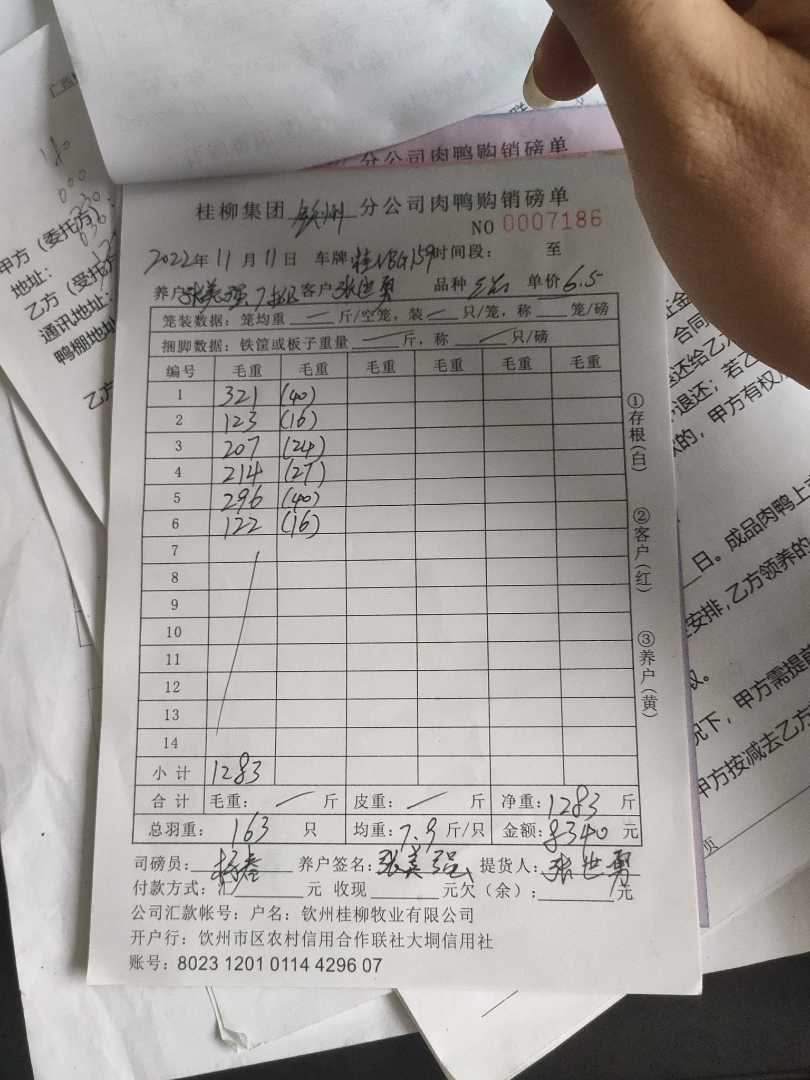 分公司肉鸭购销磅单
桂柳集团 钦州 分公司肉鸭购销磅单
NO 0007186
2022年11月11日 车牌:桂NBG159 时间段: 至
养户 张美强 客户 张世勇 品种 单价 6.5
笼装数据:笼均重 一 斤/空笼,装 一 只/笼,称 笼/磅
捆脚数据:铁筐或板子重量 一 斤,称 一 只/磅
编号 毛重 毛重 毛重 毛重 毛重 毛重
1 321 (40)
2 123 (16)
3 207 (24)
4 214 (27)
5 296 (40)
6 122 (16)
7
8
9
10
11
12
13
14
小计 1283
合计 毛重: 一 斤 皮重: 一 斤 净重:1283 斤
总羽重: 163 只 均重:7.9 斤/只 金额:8340 元
司磅员: 养户签名:张美强 提货人:张世勇
付款方式:汇 元 收现 元欠(余): 元
公司汇款帐号:户名:钦州桂柳牧业有限公司
开户行:饮州市区农村信用合作联社大垌信用社
账号:8023 1201 0114 4296 07
①存根(白)
②客户(红)
③养户(黄)
甲方(委托方)
地址:
乙方(受托方
通讯地址:
鸭棚地址
乙方
合同
退还给乙
退还;若乙
的,甲方有权
日。成品肉鸭上
安排,乙方领养的
况下,甲方需提前
甲方按减去乙方
页